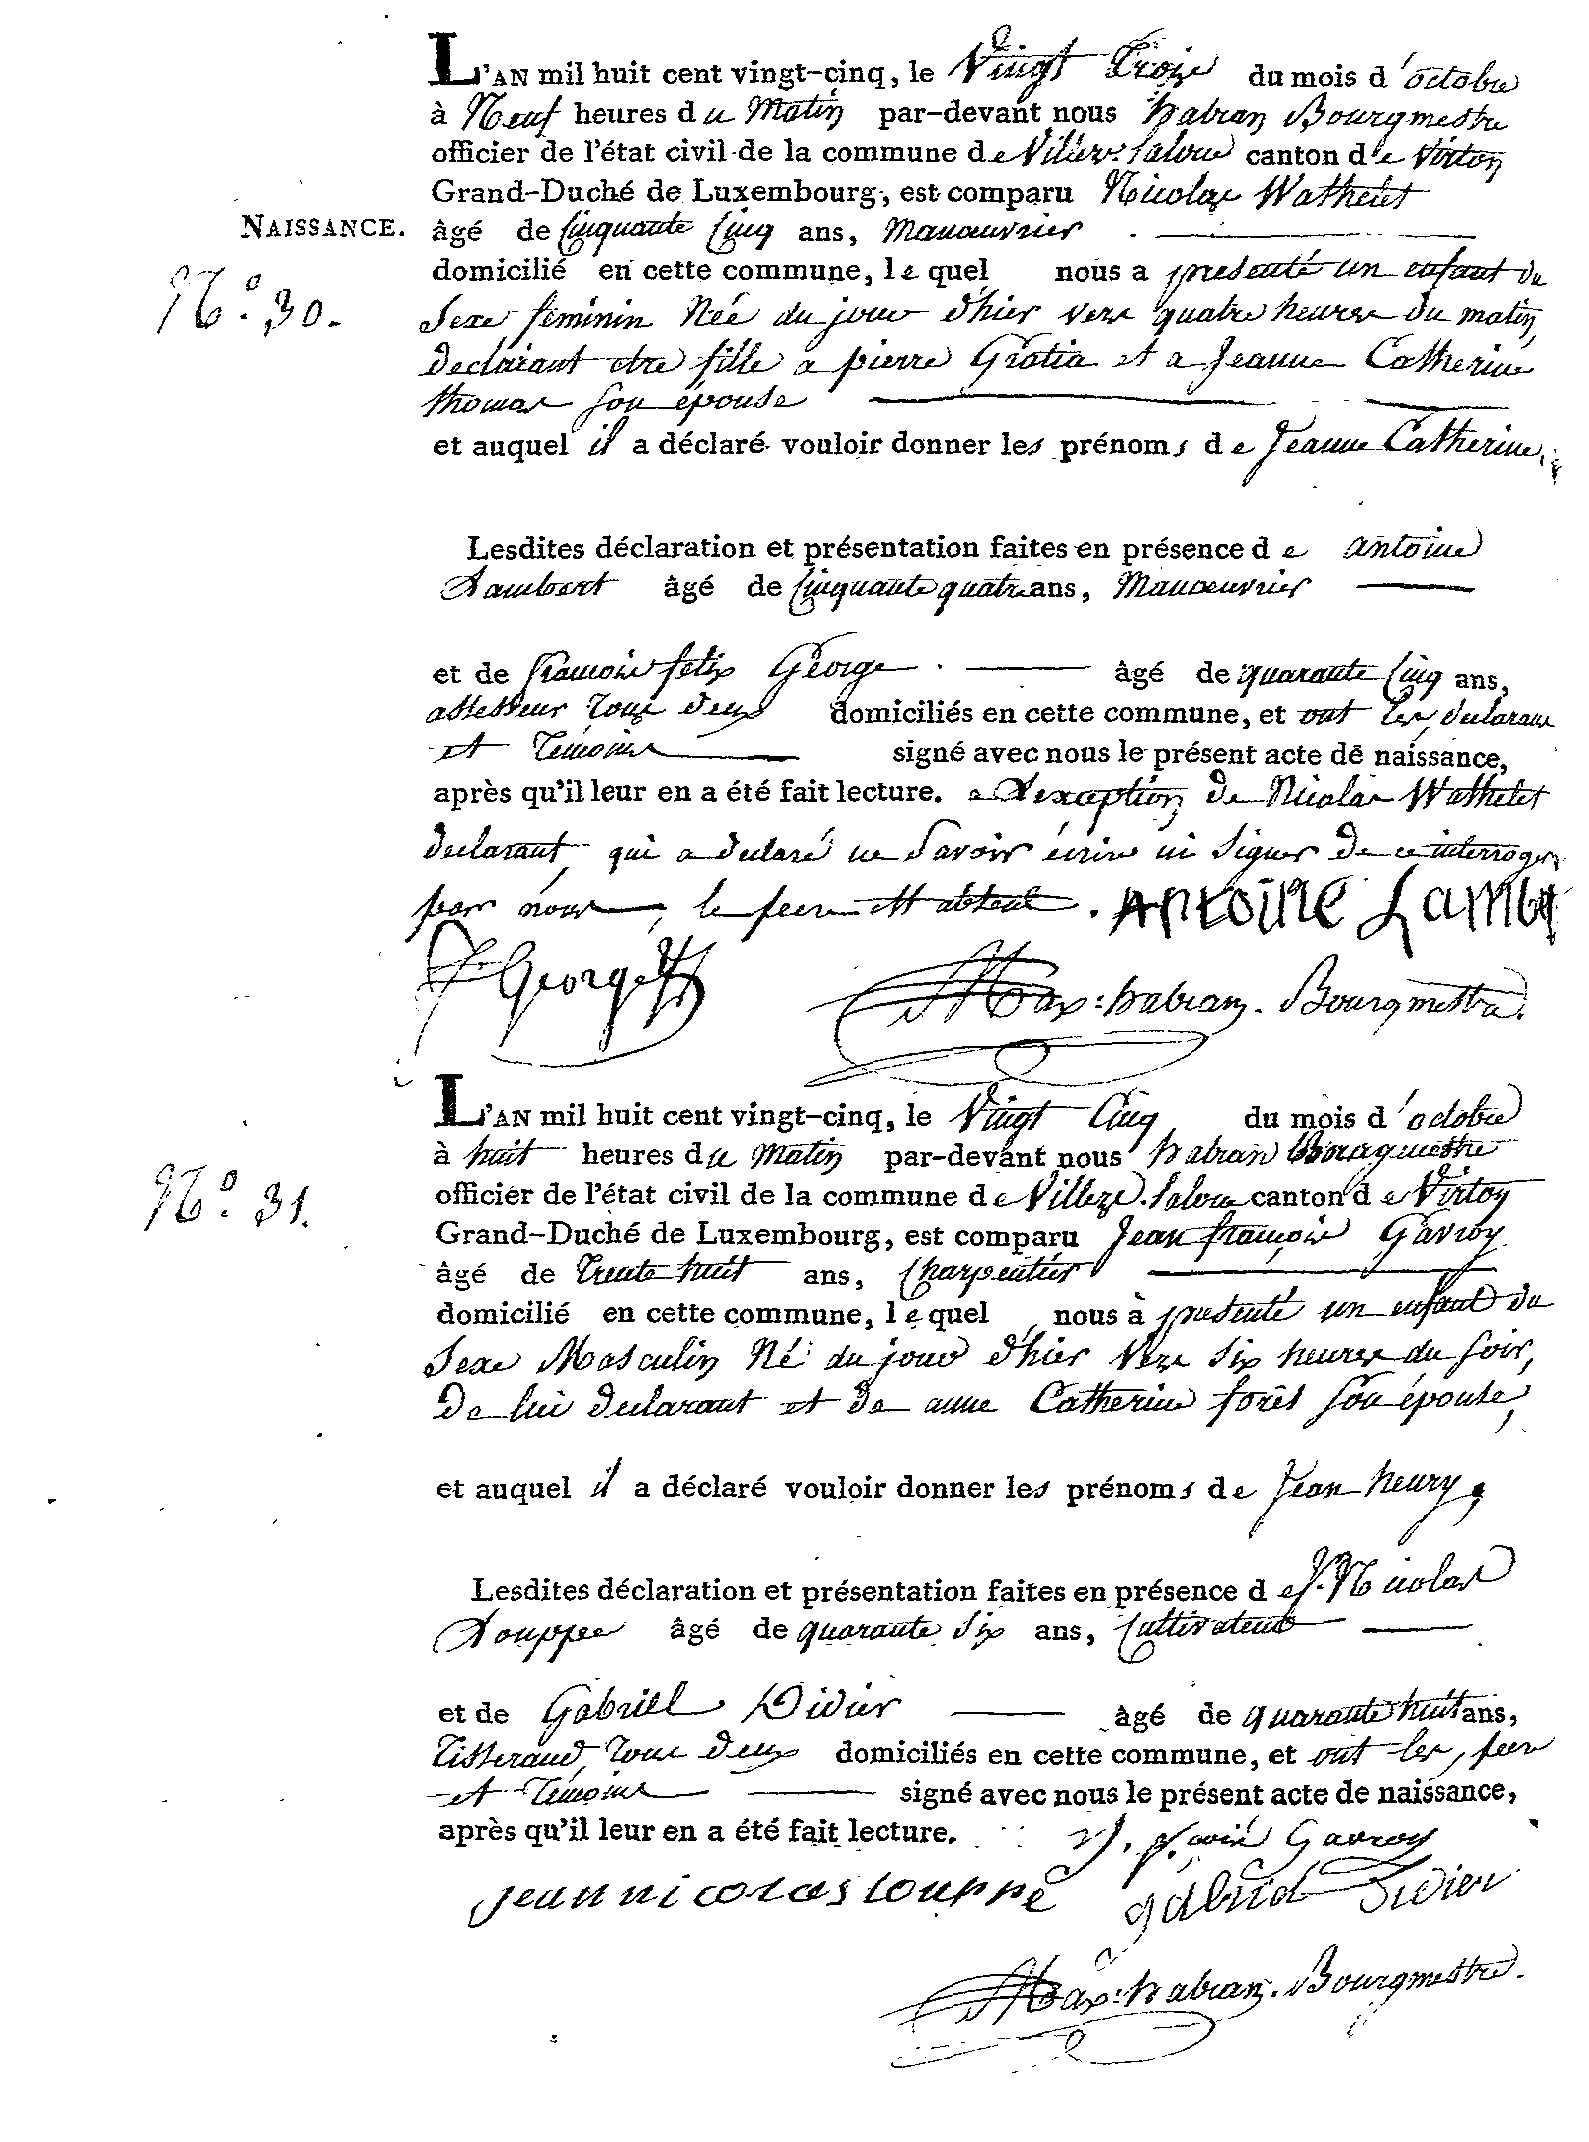 L'AN mil huit cent vingt-cinq, le Vingt Trois du mois d'octobre
à Neuf heures du Matin par-devant nous habran Bourgmestre
officier de l'état civil de la commune de Villers salone canton de Virton
Grand-Duché de Luxembourg, est comparu Nicolas Wathelet
NAISSANCE. âgé de Cinquante Cinq ans, Manoeuvrier
domicilié en cette commune, le quel nous a presenté un enfant du
N.° 30. Sexe féminin Née du jour d'hier vers quatre heures du matin,
declarant etre fille a pierre Gratia et a Jeanne Catherine
thomas son épouse
et auquel il a déclaré vouloir donner les prénoms de Jeanne Catherine,
Lesdites déclaration et présentation faites en présence de antoine
Lambert âgé de Cinquante quatre ans, Manoeuvrier
et de francois felix George âgé de quarante Cinq ans,
assesseur Tous deux domiciliés en cette commune, et ont les, declarant
et Témoins signé avec nous le présent acte de naissance,
après qu'il leur en a été fait lecture. a L'exception de Nicolas Wathelet
declarant, qui a declaré ne savoir écrire ni signer de ce interroger
par nous, le pere est absent. Antoine Lambert
f George
Max: habran. Bourgmestre.
L'AN mil huit cent vingt-cinq, le Vingt Cinq du mois d'octobre
à huit heures du Matin par-devant nous habran Bourgmestre
N.° 31. officier de l'état civil de la commune de Villers. salone canton de Virton
Grand-Duché de Luxembourg, est comparu Jean françois Gavroy
âgé de Trente huit ans, Charpentier
domicilié en cette commune, le quel nous à presenté un enfant du
Sexe Masculin Né du jour d'hier Vers six heures du soir,
de lui declarant et de anne Catherine forêt son épouse,
et auquel il a déclaré vouloir donner les prénoms de Jean henry,
Lesdites déclaration et présentation faites en présence de J. Nicolas
Louppe âgé de quarante six ans, Cultivateur
et de Gabriel Didier âgé de quarante huit ans,
Tisserand, Tous deux domiciliés en cette commune, et ont les, pere
et Témoins signé avec nous le présent acte de naissance,
après qu'il leur en a été fait lecture. Gavroy
jean nicolas louppe gabriel Didier
Max: habran. Bourgmestre.